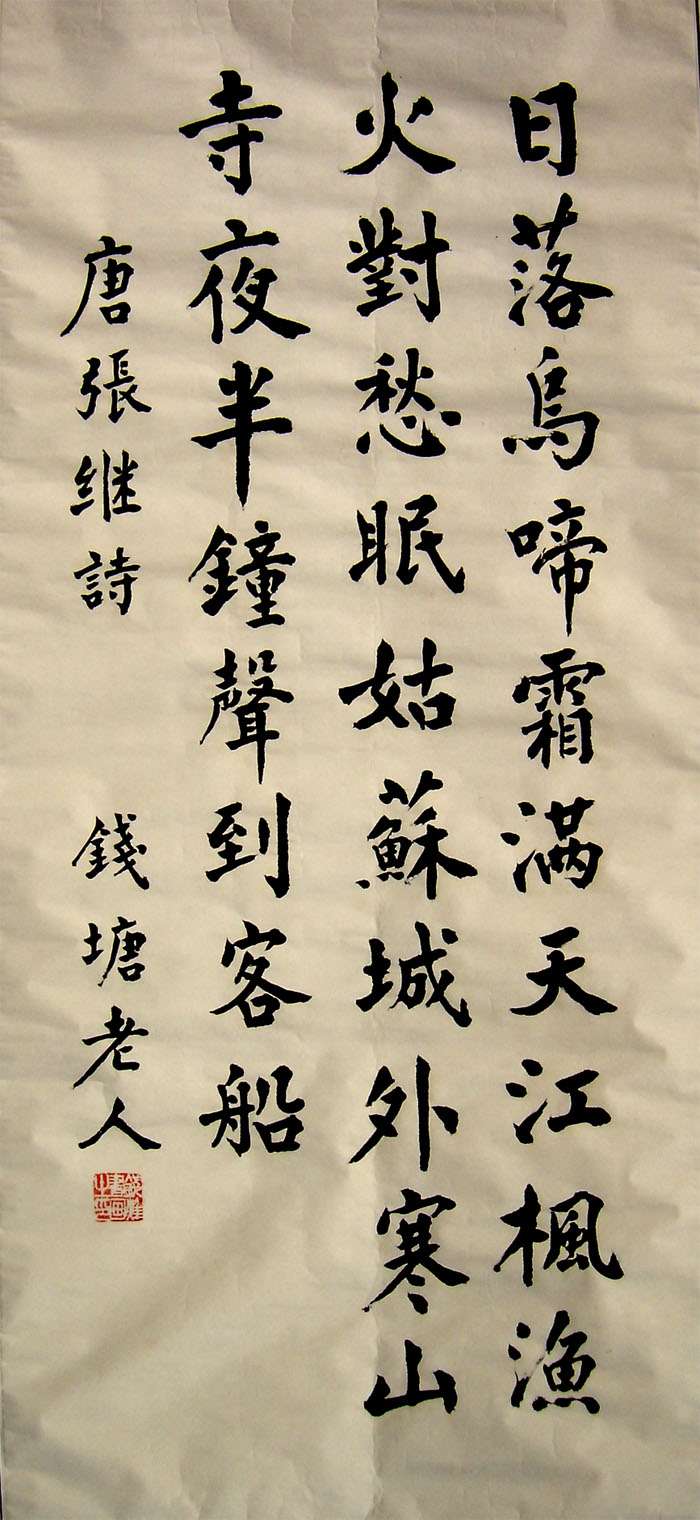 日落烏啼霜滿天江楓漁
火對愁眠姑蘇城外寒山
寺夜半鐘聲到客船
唐張继詩
錢塘老人